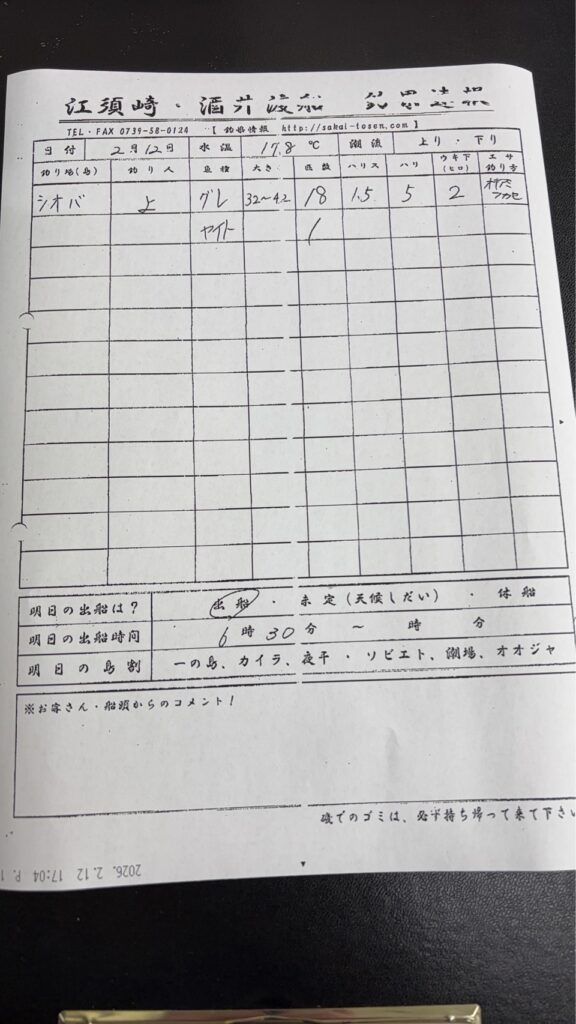 江須崎・酒井渡船 釣果速報
TEL・FAX 0739-58-0124 【 釣船情報 http://sakai-tosen.com 】
日付 2月12日 水温 17.8 ℃ 潮流 上り・下り
釣り場(島) 釣り人 魚種 大きさ 匹数 ハリス ハリ ウキ下(ヒロ) エサ釣り方
シオバ グレ 32〜42 18 1.5 5 2 オキアミ フカセ
ヤイト 1
明日の出船は? 出船 ・ 未定(天候しだい) ・ 休船
明日の出船時間 6時30分 〜 時 分
明日の島割 一の島、カイラ、夜干 ・ ソビエト、潮場、オオジャ
※お客さん・船頭からのコメント!
磯でのゴミは、必ず持ち帰って来て下さい
2026. 2.12 17:04 P. 1